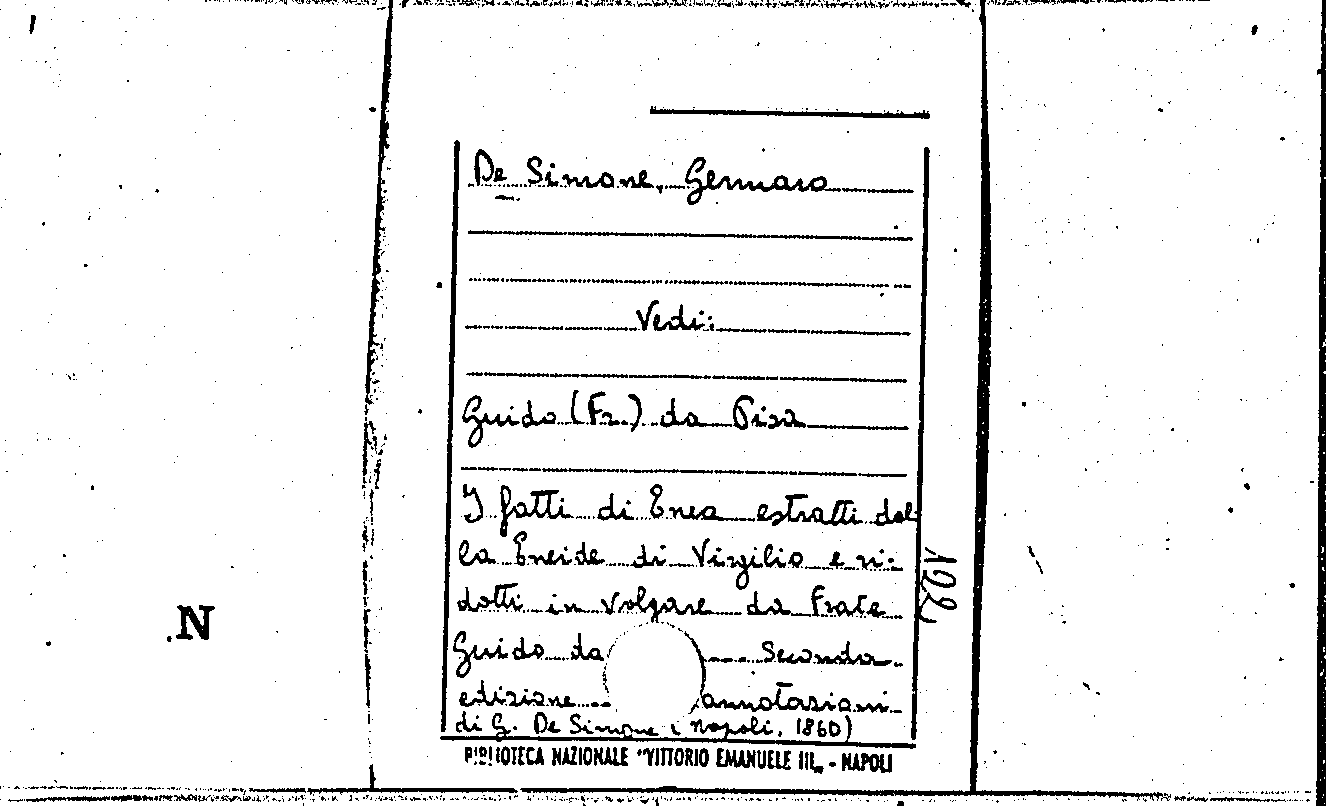 De Simone, Gennaro
Vedi:
Guido (Fr.) da Pisa
I fatti di Enea estratti dal
la Eneide di Virgilio e ri-
dotti in volgare da Frate
Guido da ... Seconda
edizione ... annotazioni
di G. De Simone (Napoli, 1860)
122
N
BIBLIOTECA NAZIONALE "VITTORIO EMANUELE III„ - NAPOLI